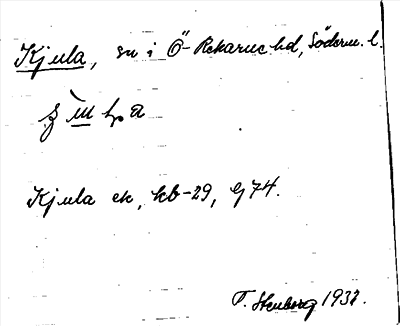 Kjula, sn i Ö-Rekarne hd, Söderm. l.
Kjula ek, kb-29, Gj 74.
T. Stenborg 1932.